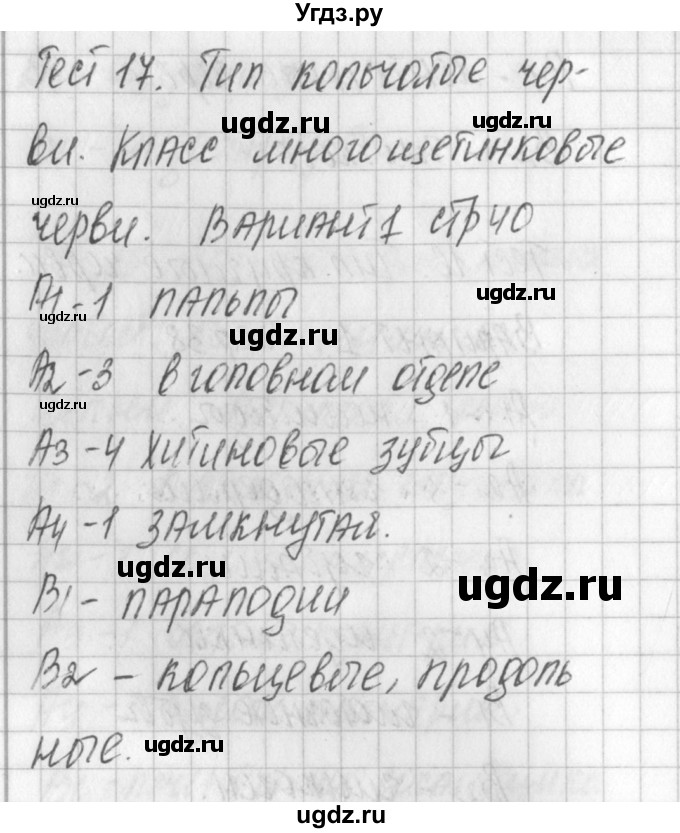 Угдз.ру
Тест 17. Тип кольчатые чер-
ugdz.ru ugdz.ru
ви. Класс многощетинковые
ugdz.ru
черви. Вариант 1 стр 40
ugdz.ru
А1-1 пальпы
ugdz.ru
ugdz.ru
А2-3 в головном отделе
ugdz.ru
А3-4 Хитиновые зубцы
А4-1 замкнутая.
ugdz.ru ugdz.ru
В1- параподии
В2 - кольцевые, продоль
ные. ugdz.ru
ugdz.ru